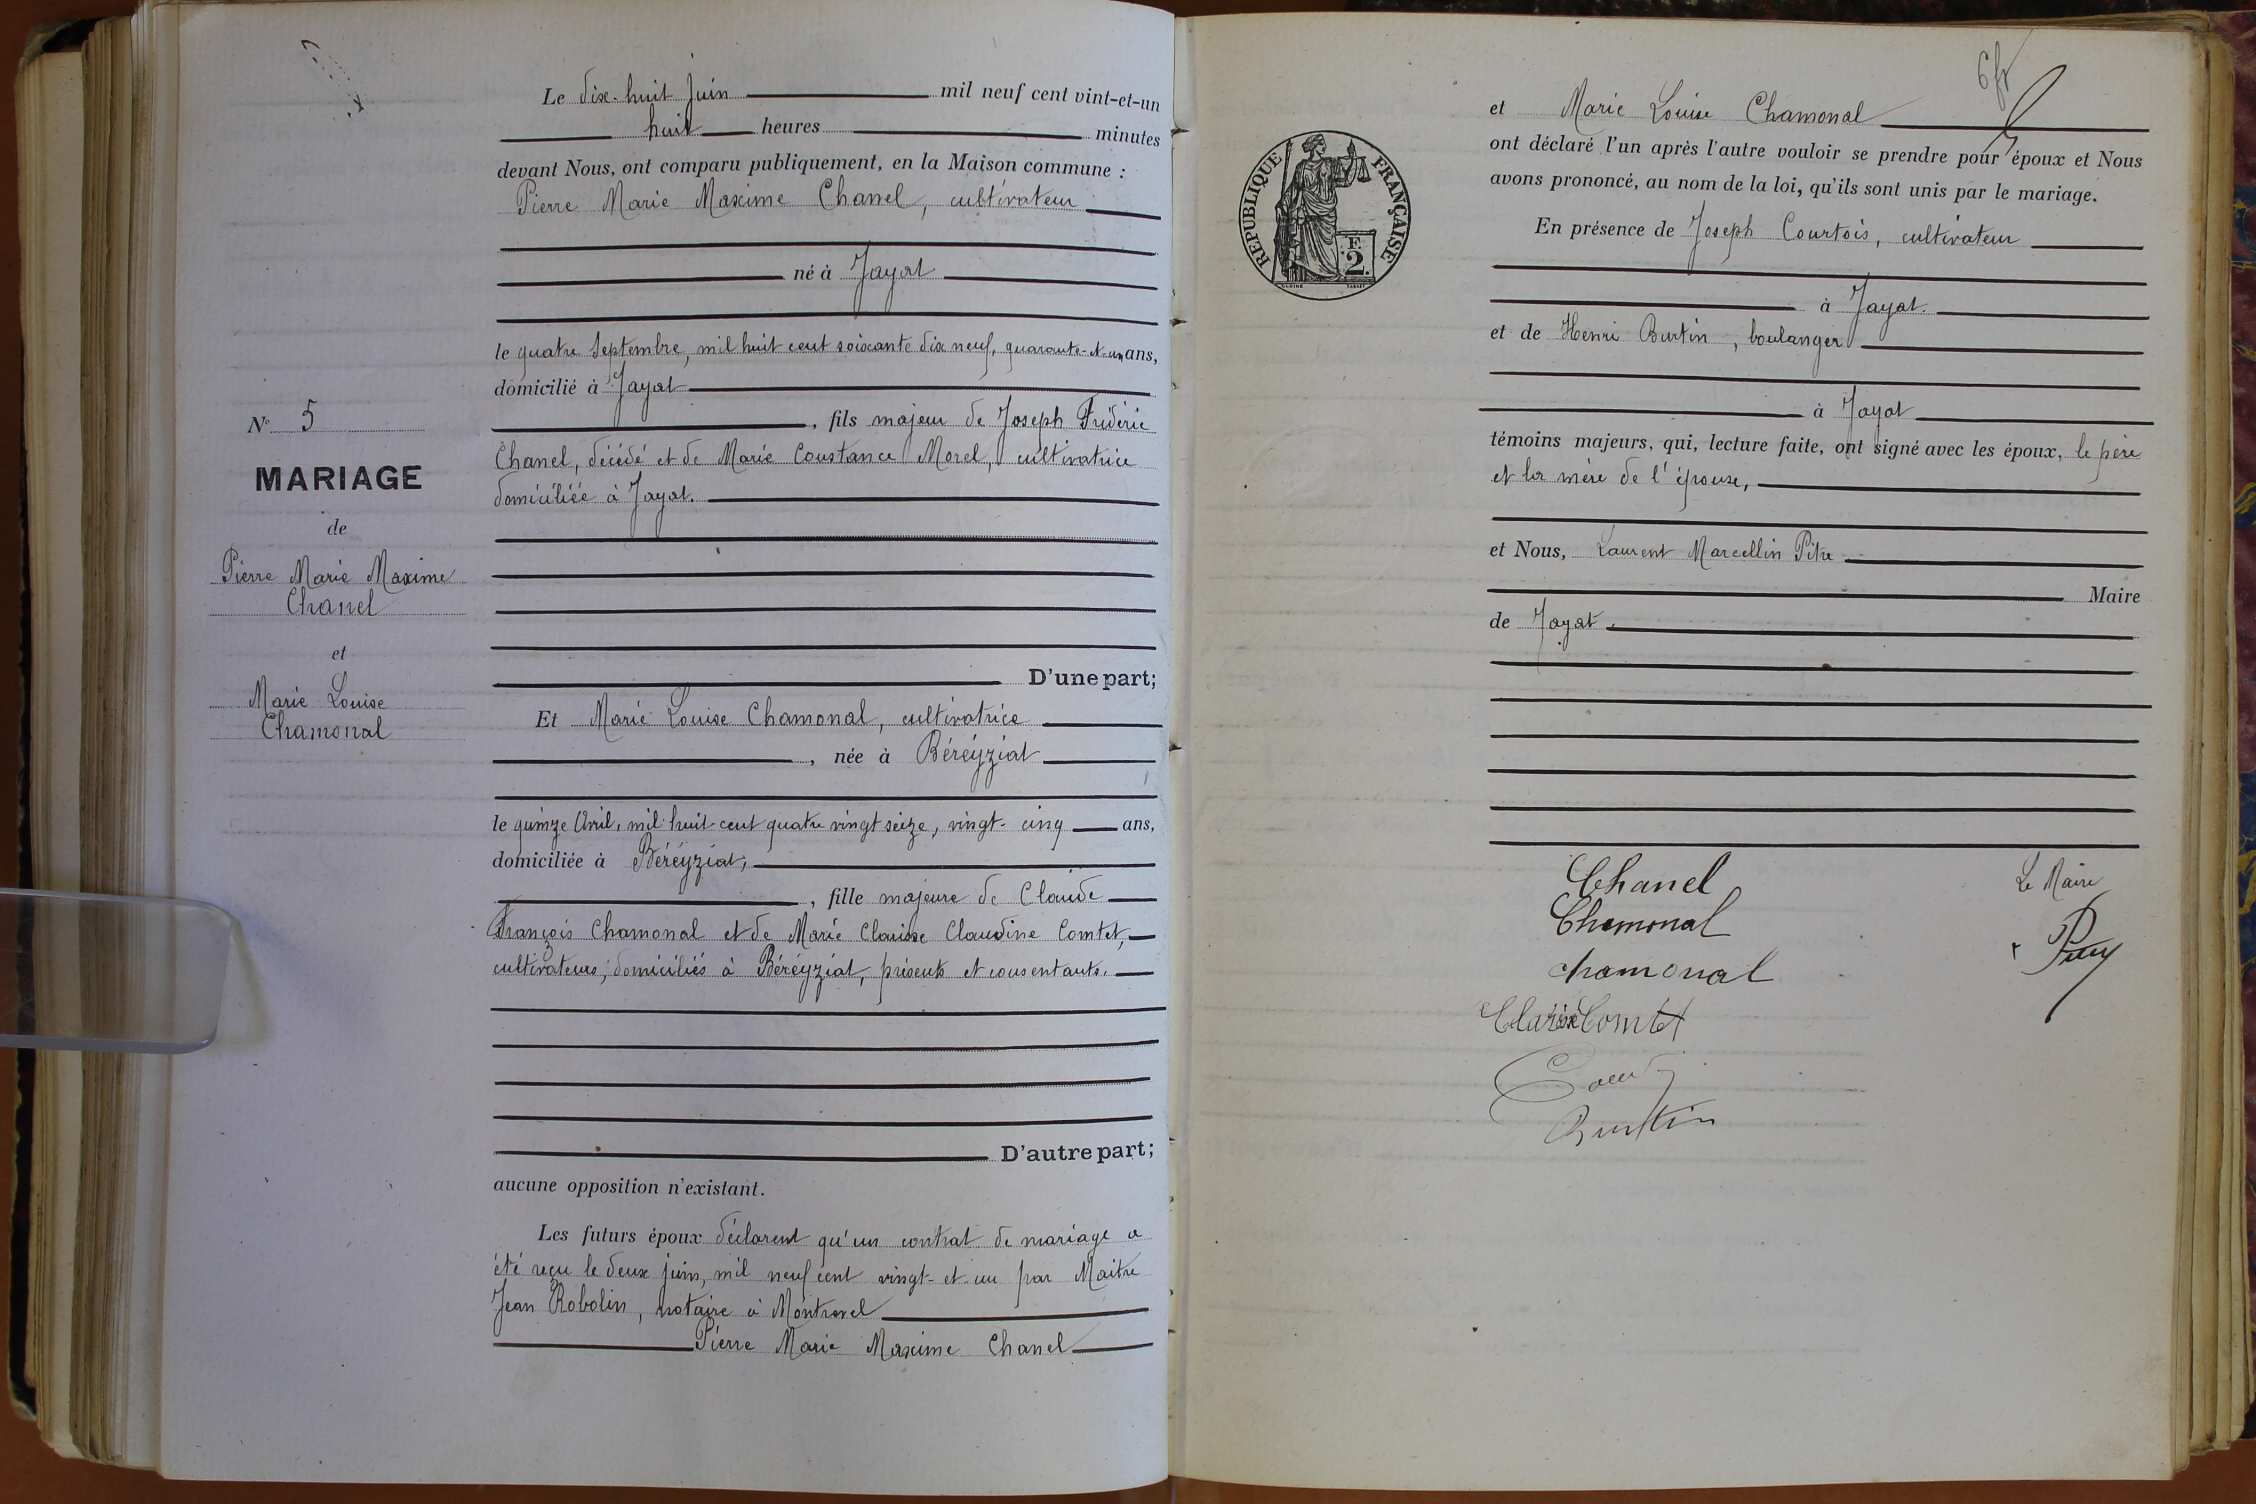 Le dix-huit juin mil neuf cent vint-et-un
huit heures minutes
devant Nous, ont comparu publiquement, en la Maison commune :
Pierre Marie Maxime Chanel, cultivateur
né à Jayat
le quatre Septembre, mil huit cent soixante dix neuf, quarante-et-un ans,
domicilié à Jayat
, fils majeur de Joseph Frédéric
Chanel, décédé et de Marie Constance Morel, cultivatrice
domiciliée à Jayat.
D'une part;
Et Marie Louise Chamonal, cultivatrice
, née à Béréyziat
le quinze Avril, mil huit cent quatre vingt seize, vingt-cinq ans,
domiciliée à Béréyziat,
, fille majeure de Claude
François Chamonal et de Marie Clarisse Claudine Comtet,
cultivateurs, domiciliés à Béréyziat, présents et consentants.
D'autre part;
aucune opposition n'existant.
Les futurs époux déclarent qu'un contrat de mariage a
été reçu le deux juin, mil neuf cent vingt-et-un par Maître
Jean Robolin, notaire à Montrevel
Pierre Marie Maxime Chanel
N° 5
MARIAGE
de
Pierre Marie Maxime
Chanel
et
Marie Louise
Chamonal
6 fr
et Marie Louise Chamonal
ont déclaré l'un après l'autre vouloir se prendre pour époux et Nous
avons prononcé, au nom de la loi, qu'ils sont unis par le mariage.
En présence de Joseph Courtois, cultivateur
à Jayat.
et de Henri Burtin, boulanger
à Jayat
témoins majeurs, qui, lecture faite, ont signé avec les époux, le père
et la mère de l'épouse,
et Nous, Laurent Marcellin Pitre
Maire
de Jayat.
RÉPUBLIQUE FRANÇAISE
F.
2.
Chanel
Chamonal
chamonal
Clarisse Comtet
Burtin
Le Maire